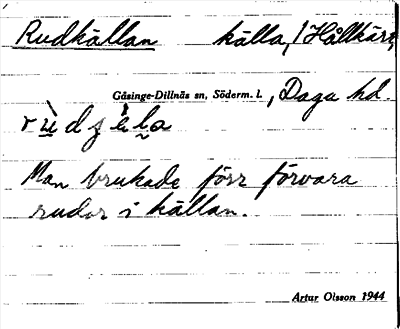 Rudkällan källa, i Hållkärr
Gåsinge-Dillnäs sn, Söderm. l., Daga hd.
Man brukade förr förvara
rudor i källan.
Artur Olsson 1944